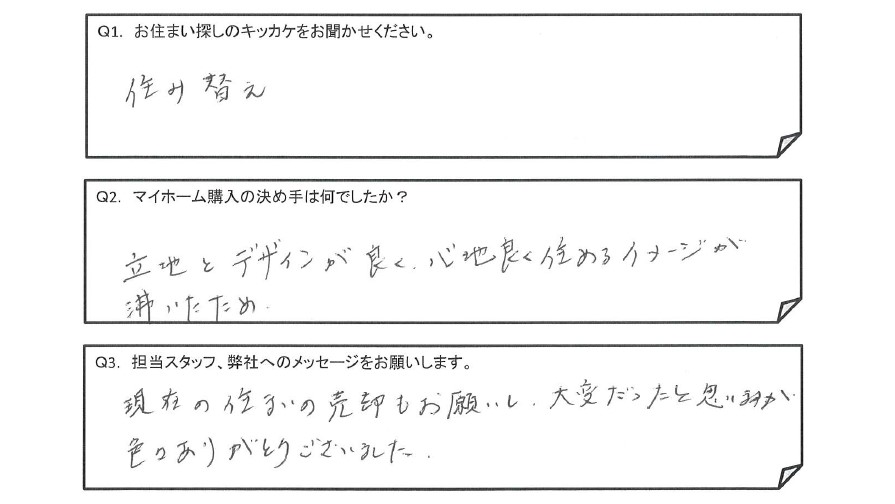 Q1. お住まい探しのキッカケをお聞かせください。
住み替え
Q2. マイホーム購入の決め手は何でしたか？
立地とデザインが良く、心地良く住めるイメージが
沸いたため.
Q3. 担当スタッフ、弊社へのメッセージをお願いします。
現在の住まいの売却もお願いし、大変だったと思いますが、
色々ありがとうございました.